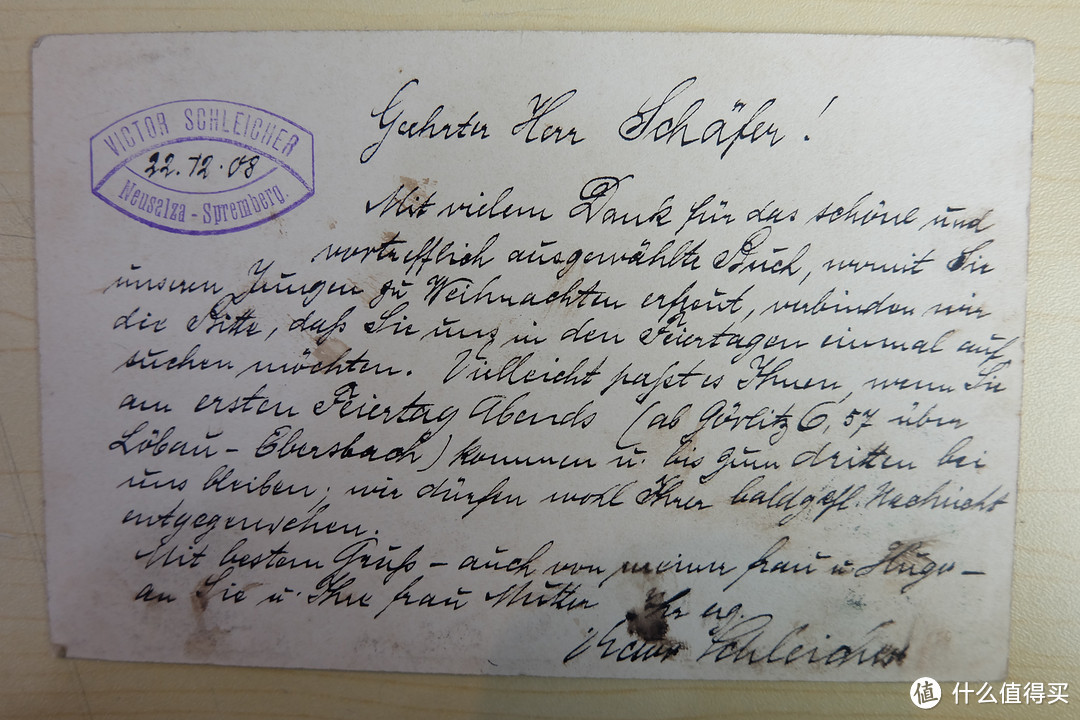 VICTOR SCHLEICHER
22.12.08
Neusalza-Spremberg.
Geehrter Herr Schäfer!
Mit vielem Dank für das schöne und
vortrefflich ausgewählte Buch, womit Sie
unseren Jungen zu Weihnachten erfreut, verbinden wir
die Bitte, daß Sie uns in den Feiertagen einmal auf-
suchen möchten. Vielleicht paßt es Ihnen, wenn Sie
am ersten Feiertag Abends (ab Görlitz 6,57 über
Löbau-Ebersbach) kommen u. bis zum dritten bei
uns bleiben; wir dürfen wohl Ihrer baldgefl. Nachricht
entgegensehen.
Mit bestem Gruß – auch von meiner Frau u Hugo –
an Sie u. Ihre Frau Mutter Ihr erg.
Victor Schleicher
值 什么值得买